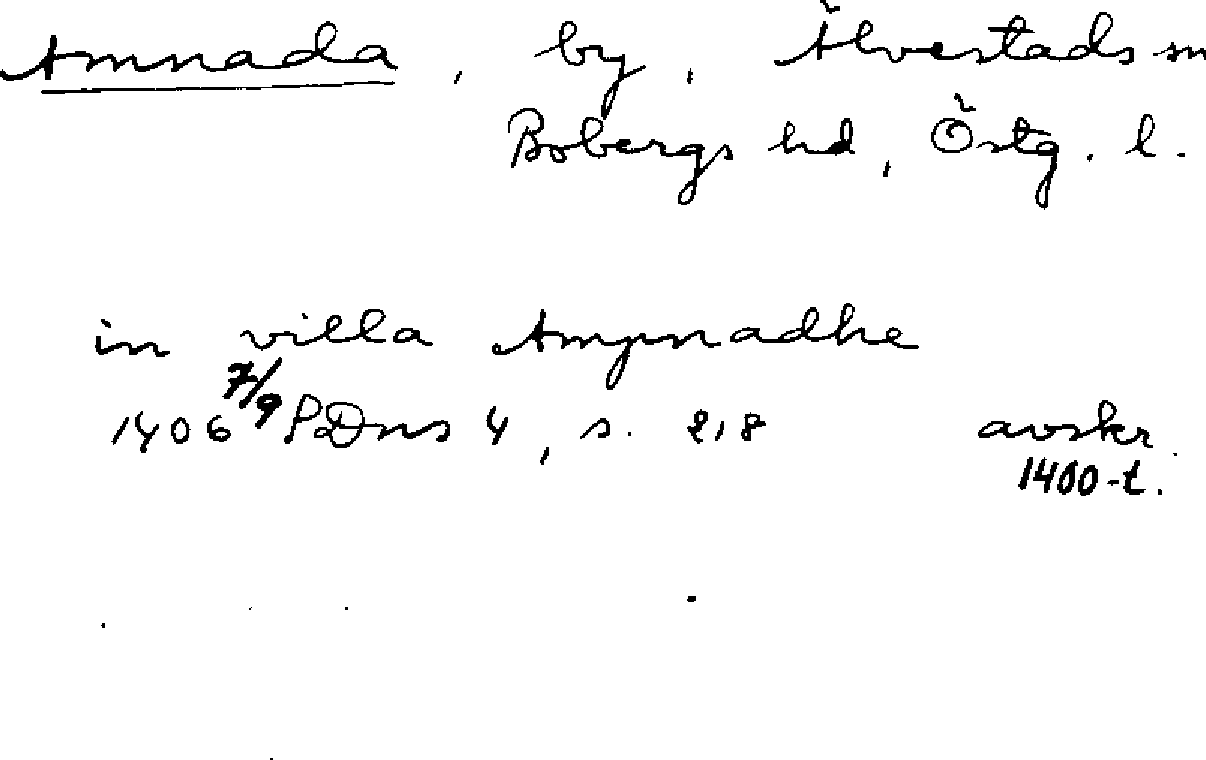 Amnada, by, Älvestads sn
Bobergs hd, Östg. l.
in villa Ampnadhe
1406 7/9 SDns 4, s. 218 avskr.
1400-t.